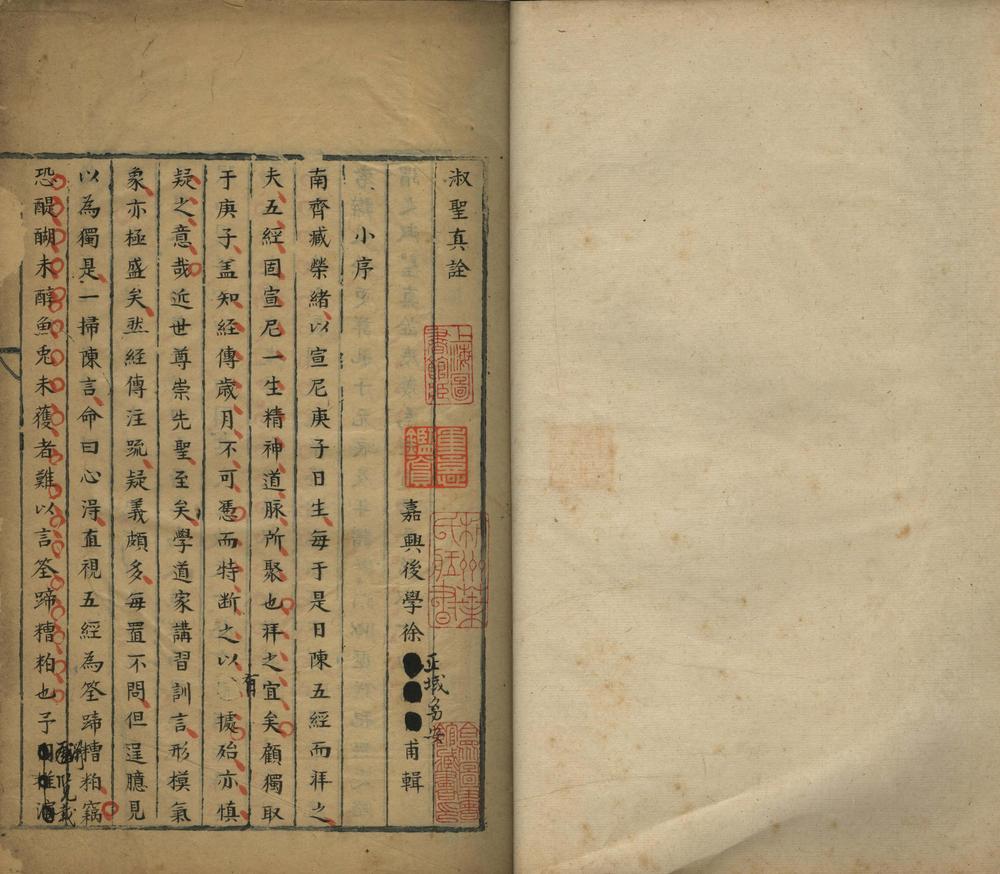 淑聖真詮
嘉興後學徐正域勇安甫輯
小序
南齊臧榮緒以宣尼庚子日生每于是日陳五經而拜之
夫五經固宣尼一生精神道脉所聚也拜之宜矣顧獨取
于庚子盖知經傳歲月不可憑而特断之以有據殆亦慎
疑之意哉近世尊崇先聖至矣學道家講習訓言形模氣
象亦極盛矣然經傳注䟽疑義頗多每置不問但逞臆見
以為獨是一掃陳言命曰心淂直視五經為筌蹄糟粕竊
恐醍醐未醇魚兎未獲者難以言筌蹄糟粕也予
上海圖書館藏